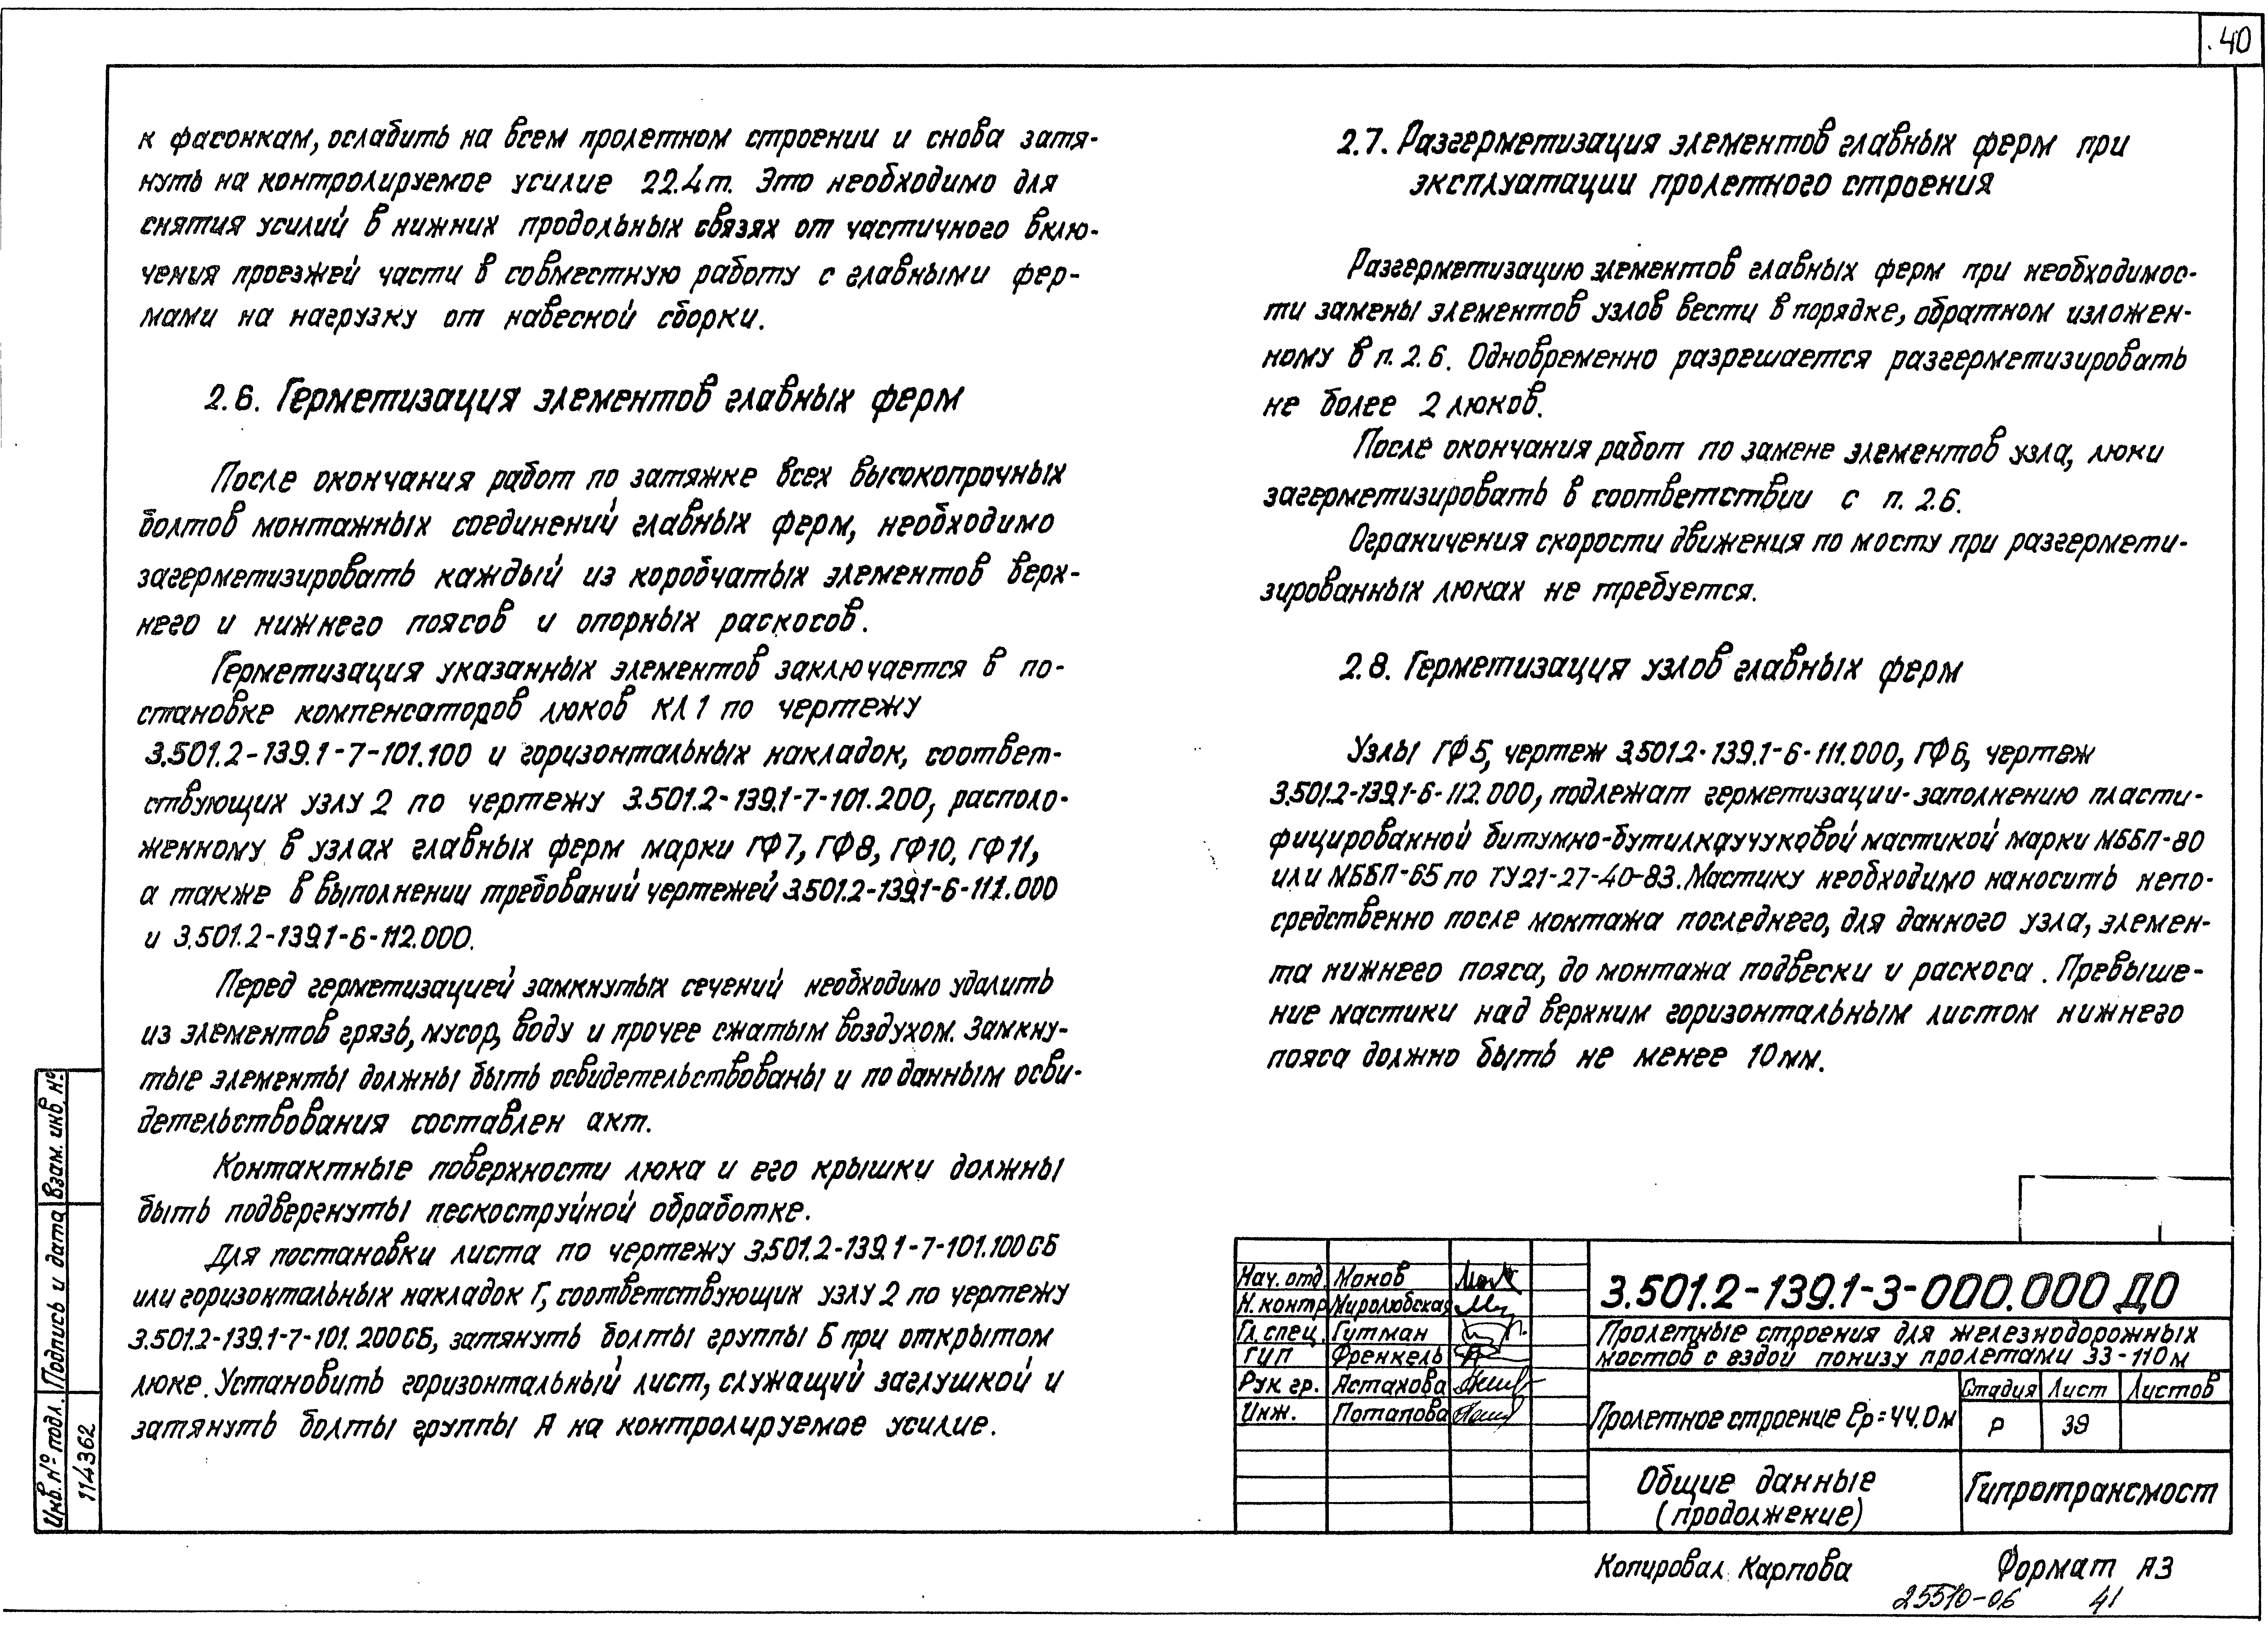 40
к фасонкам, ослабить на всем пролетном строении и снова затя-
нуть на контролируемое усилие 22.4т. Это необходимо для
снятия усилий в нижних продольных связях от частичного вклю-
чения проезжей части в совместную работу с главными фер-
мами на нагрузку от навесной сборки.
2.6. Герметизация элементов главных ферм
После окончания работ по затяжке всех высокопрочных
болтов монтажных соединений главных ферм, необходимо
загерметизировать каждый из коробчатых элементов верх-
него и нижнего поясов и опорных раскосов.
Герметизация указанных элементов заключается в по-
становке компенсаторов люков КЛ1 по чертежу
3.501.2-139.1-7-101.100 и горизонтальных накладок, соответ-
ствующих узлу 2 по чертежу 3.501.2-139.1-7-101.200, располо-
женному в узлах главных ферм марки ГФ7, ГФ8, ГФ10, ГФ11,
а также в выполнении требований чертежей 3.501.2-139.1-6-111.000
и 3.501.2-139.1-6-112.000.
Перед герметизацией замкнутых сечений необходимо удалить
из элементов грязь, мусор, воду и прочее сжатым воздухом. Замкну-
тые элементы должны быть освидетельствованы и по данным осви-
детельствования составлен акт.
Контактные поверхности люка и его крышки должны
быть подвергнуты пескоструйной обработке.
Для постановки листа по чертежу 3.501.2-139.1-7-101.100СБ
или горизонтальных накладок Г, соответствующих узлу 2 по чертежу
3.501.2-139.1-7-101.200СБ, затянуть болты группы Б при открытом
люке. Установить горизонтальный лист, служащий заглушкой и
затянуть болты группы А на контролируемое усилие.
2.7. Разгерметизация элементов главных ферм при
эксплуатации пролетного строения
Разгерметизацию элементов главных ферм при необходимос-
ти замены элементов узлов вести в порядке, обратном изложен-
ному в п. 2.6. Одновременно разрешается разгерметизировать
не более 2 люков.
После окончания работ по замене элементов узла, люки
загерметизировать в соответствии с п. 2.6.
Ограничения скорости движения по мосту при разгермети-
зированных люках не требуется.
2.8. Герметизация узлов главных ферм
Узлы ГФ5, чертеж 3.501.2-139.1-6-111.000, ГФ6, чертеж
3.501.2-139.1-6-112.000, подлежат герметизации-заполнению пласти-
фицированной битумно-бутилкаучуковой мастикой марки МББП-80
или МББП-65 по ТУ21-27-40-83. Мастику необходимо наносить непо-
средственно после монтажа последнего, для данного узла, элемен-
та нижнего пояса, до монтажа подвески и раскоса. Превыше-
ние мастики над верхним горизонтальным листом нижнего
пояса должно быть не менее 10мм.
Взам. инв. №
Подпись и дата
Инв. № подл.
114362
Нач. отд. Монов
Н. контр Миролюбская
Гл. спец. Гутман
ГИП Френкель
Рук. гр. Астахова
Инж. Потапова
3.501.2-139.1-3-000.000 ДО
Пролетные строения для железнодорожных
мостов с ездой понизу пролетами 33-110м
Пролетное строение ℓр=44.0м
Стадия Лист Листов
Р 39
Общие данные
(продолжение)
Гипротрансмост
Копировал Карпова
Формат А3
25510-06 41